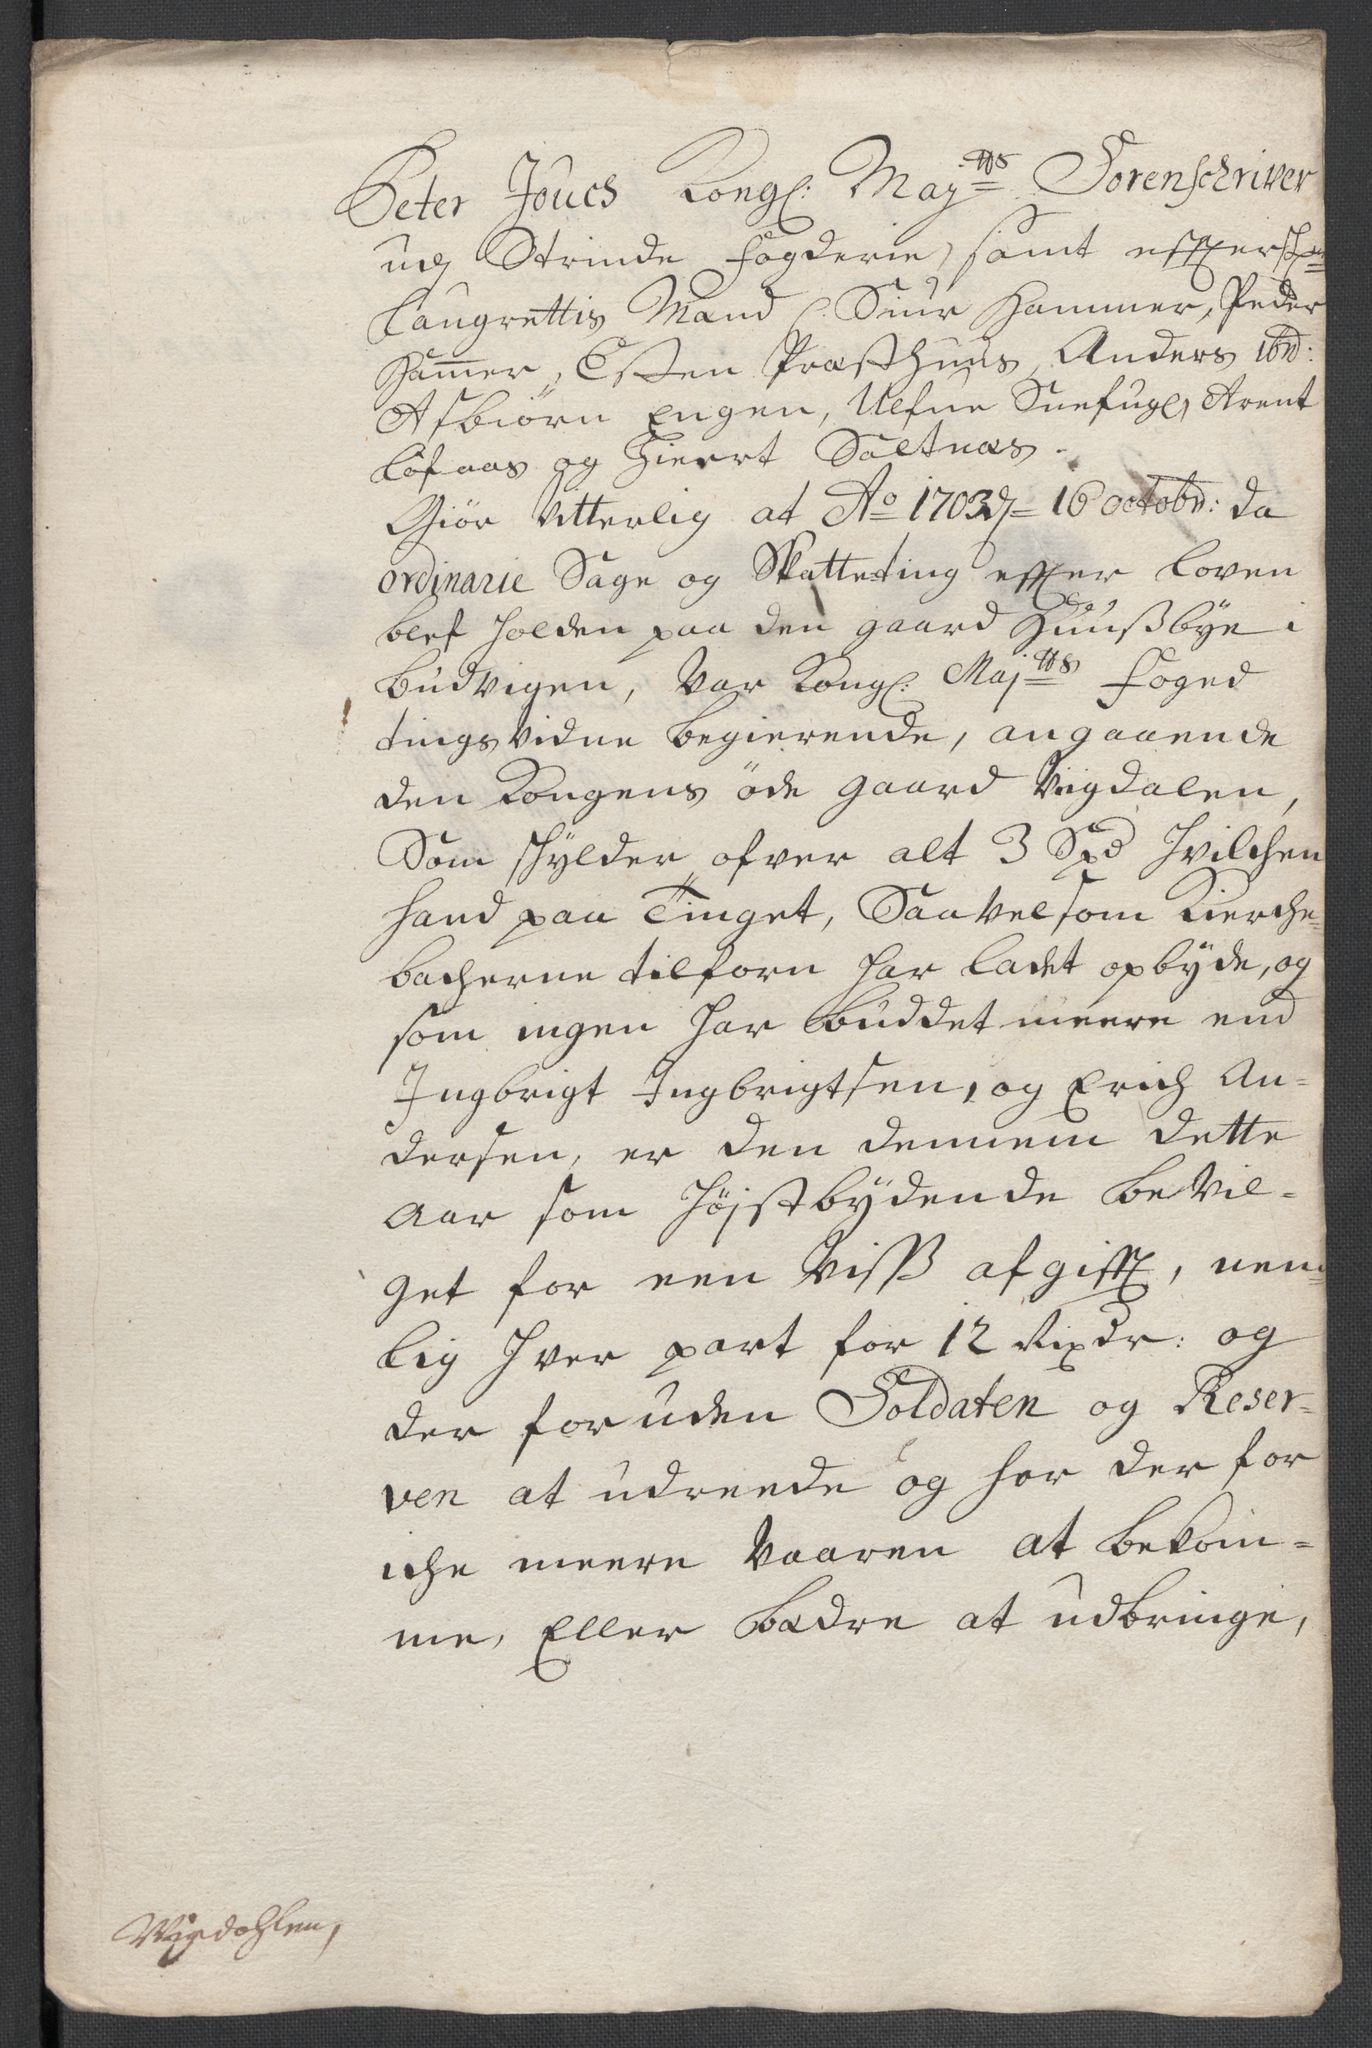 Peter Jouchs Kongl: Maj:tts Sorenschriver
udj Strinde fogderie, samt effterschr:
Laugrettis Mænd /: Siur Hammer, Peder
Hammer, Esten Præsthuus, Anders ibd:
Asbiørn Engen, Ulfue Snefugl, Arent
Løfaas og Hiert Saltnæs.
Giør Vitterlig at Ao 1703 d 16 octobr: da
ordinarie Sage og Skatteting effter Loven
blef holden paa den gaard Huußbye i
Budvigen, Var Kongl: Maj:tts foged
tingsvidne begierende, angaaende
den Kongens öde gaard Vigdalen,
Som schylder ofver alt 3 Spd hvilchen
hand paa Tinget, Saavelsom Kierche-
bacherne tilforn har Ladet opbyde, og
som ingen har buddet meere end
Ingbrigt Ingbrigtsen, og Erich An-
dersen, er den dennem dette
Aar som højstbydende beVil-
get for een Viss afgifft, nem-
lig hver part for 12 Rixdr: og
der foruden Soldaten og Reser-
ven at udreede og har der for
iche meere Vaaren at bekom-
me, Eller bædre at udbringe,
Wigdahlen,